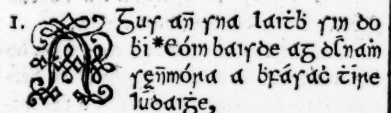 1. AGus an̄ sna laiṫḃ sin do
ḃi *Eóin baisde ag dl̄naṁ
sen̄móra a ḃfásaċ ṫíre
Iúdaiġe,